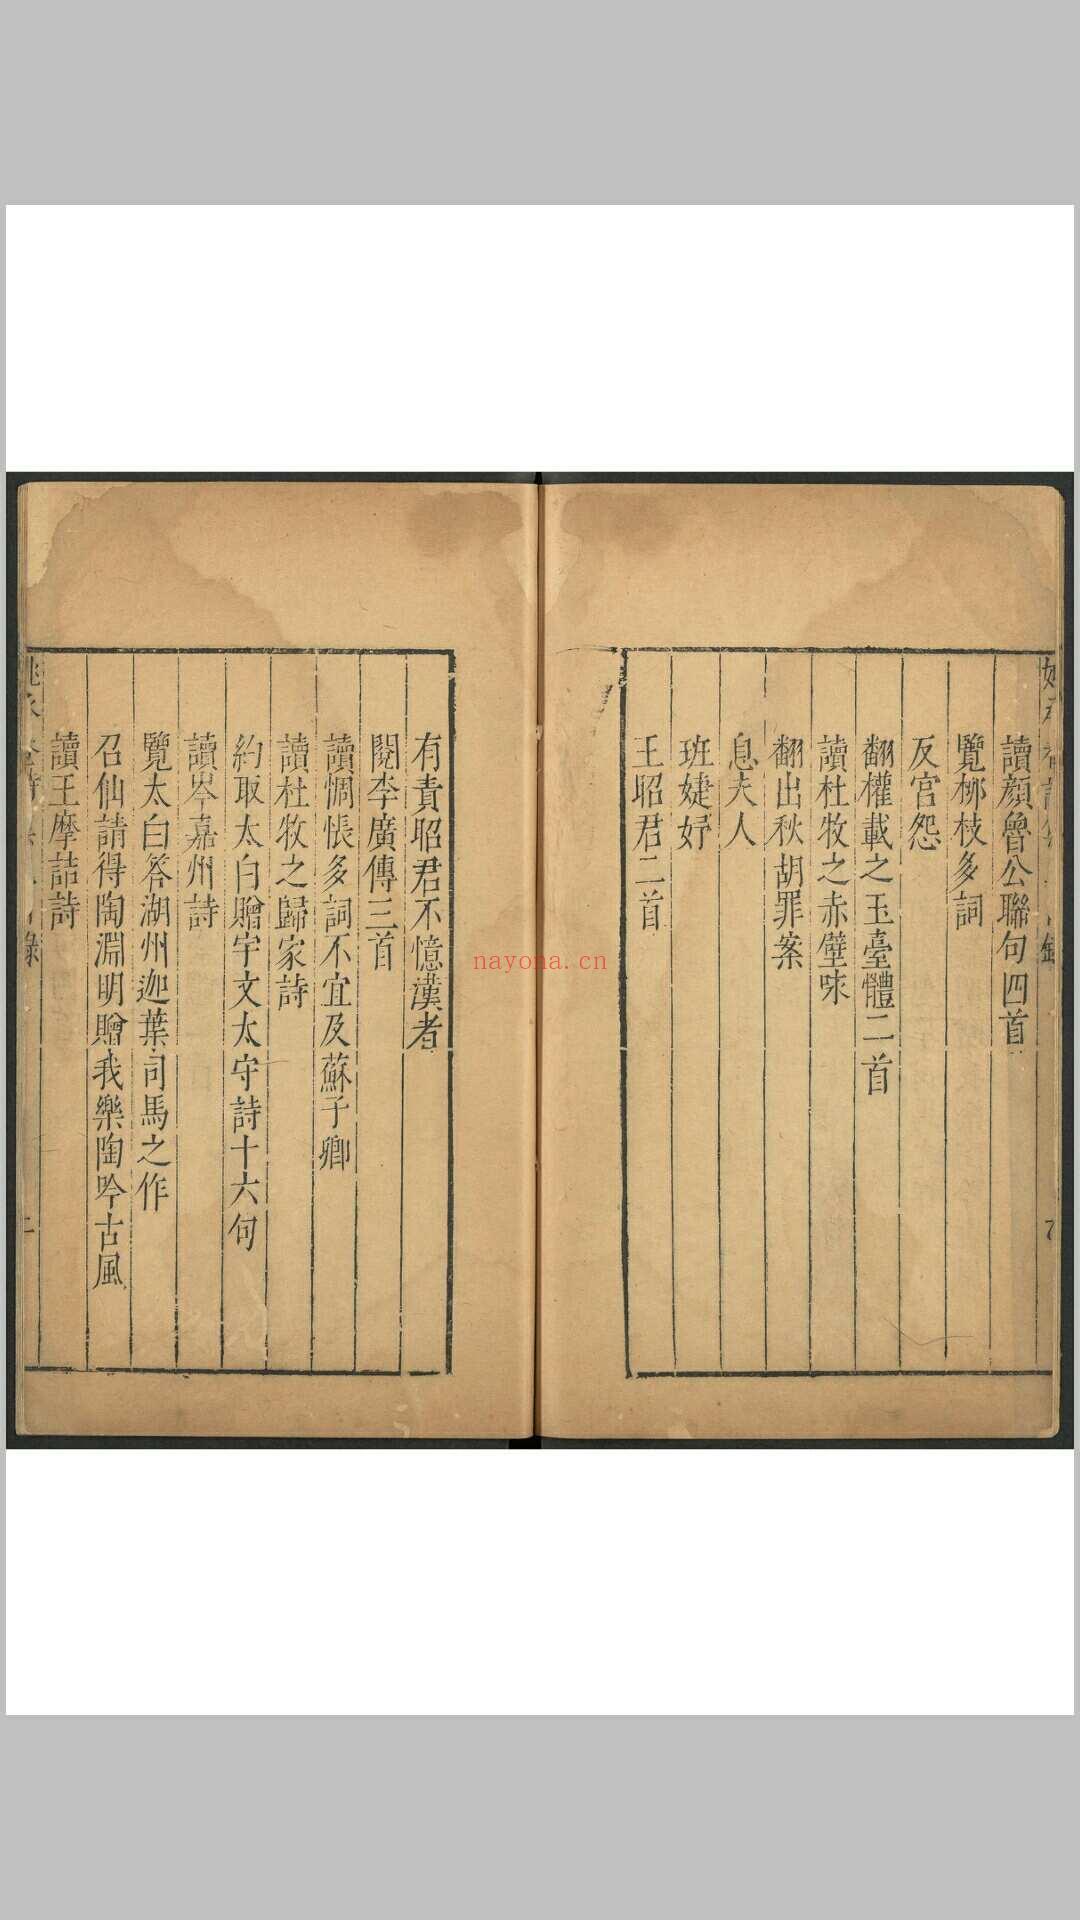 讀顏魯公聯句四首
覽柳枝多詞
反宮怨
翻權載之玉臺體二首
讀杜牧之赤壁咏
翻出秋胡罪案
息夫人
班婕妤
王昭君二首
有責昭君不憶漢者
閱李廣傳三首
讀惆悵多詞不宜及蘇子卿
讀杜牧之歸家詩
約取太白贈宇文太守詩十六句
讀岑嘉州詩
覽太白答湖州迦葉司馬之作
召仙請得陶淵明贈我樂陶吟古風
讀王摩詰詩
nayona.cn